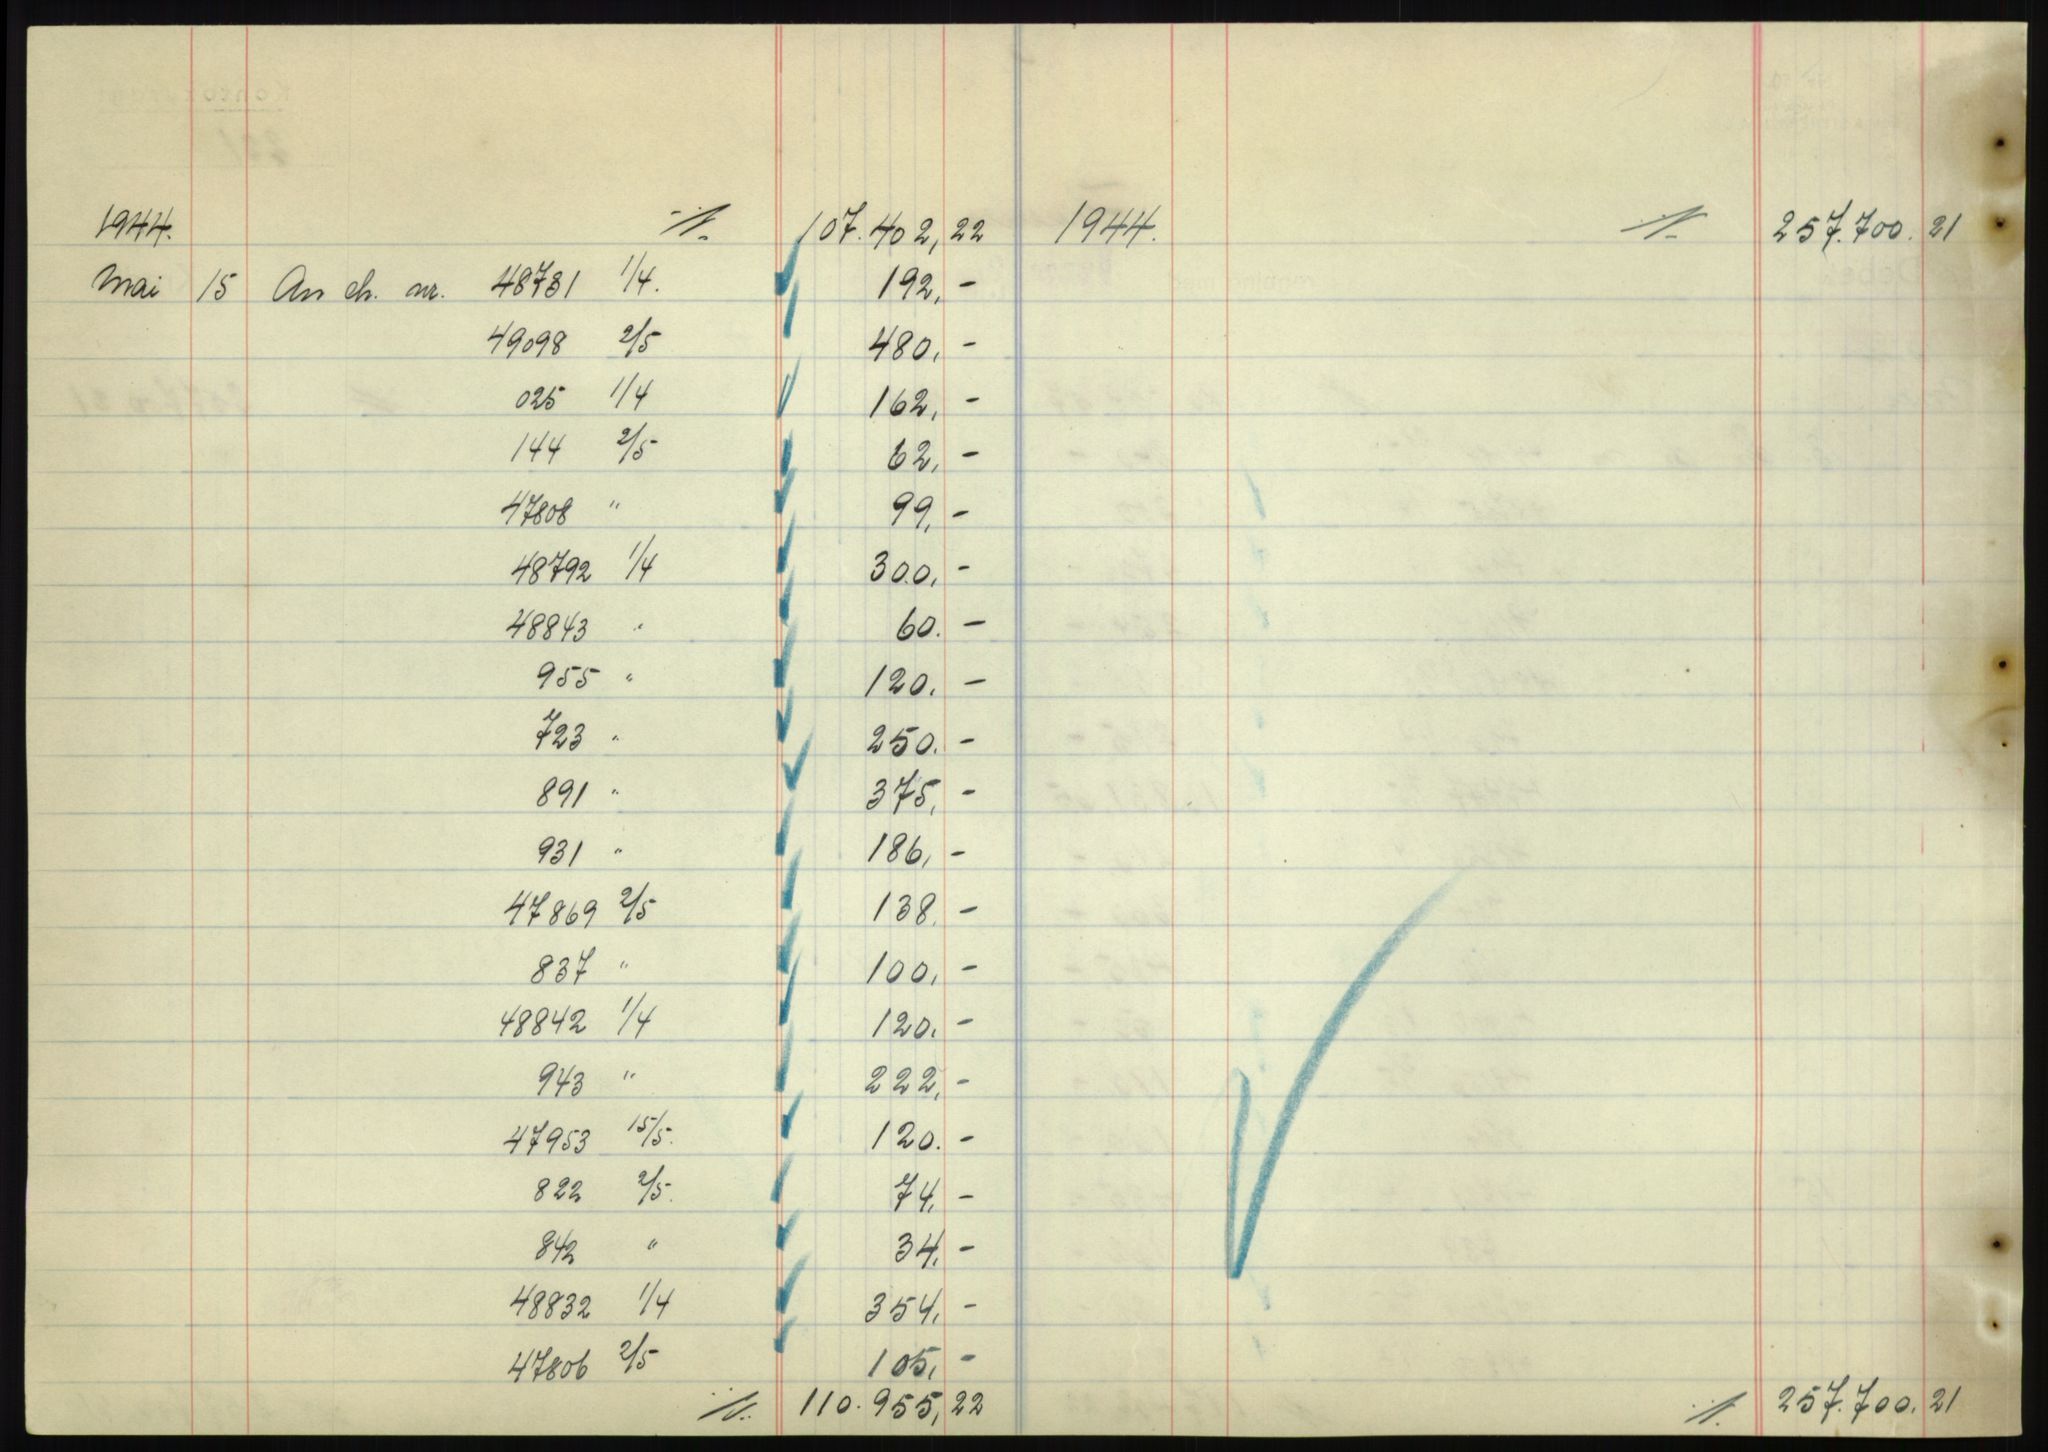 1944. ./. 107.402,22 1944. ./. 257.700.21
Mai 15 An ch. nr. 48731 1/4. 192,-
49098 2/5 480,-
025 1/4 162,-
144 2/5 62,-
47808 " 99,-
48792 1/4 300,-
48843 " 60.-
955 " 120.-
723 " 250.-
891 " 375,-
931 " 186,-
47869 2/5 138.-
837 " 100,-
48842 1/4 120.-
943 " 222,-
47953 15/5. 120.-
822 2/5. 74,-
842 " 34,-
48832 1/4 354,-
47806 2/5 105,-
./. 110.955,22 ./. 257.700.21